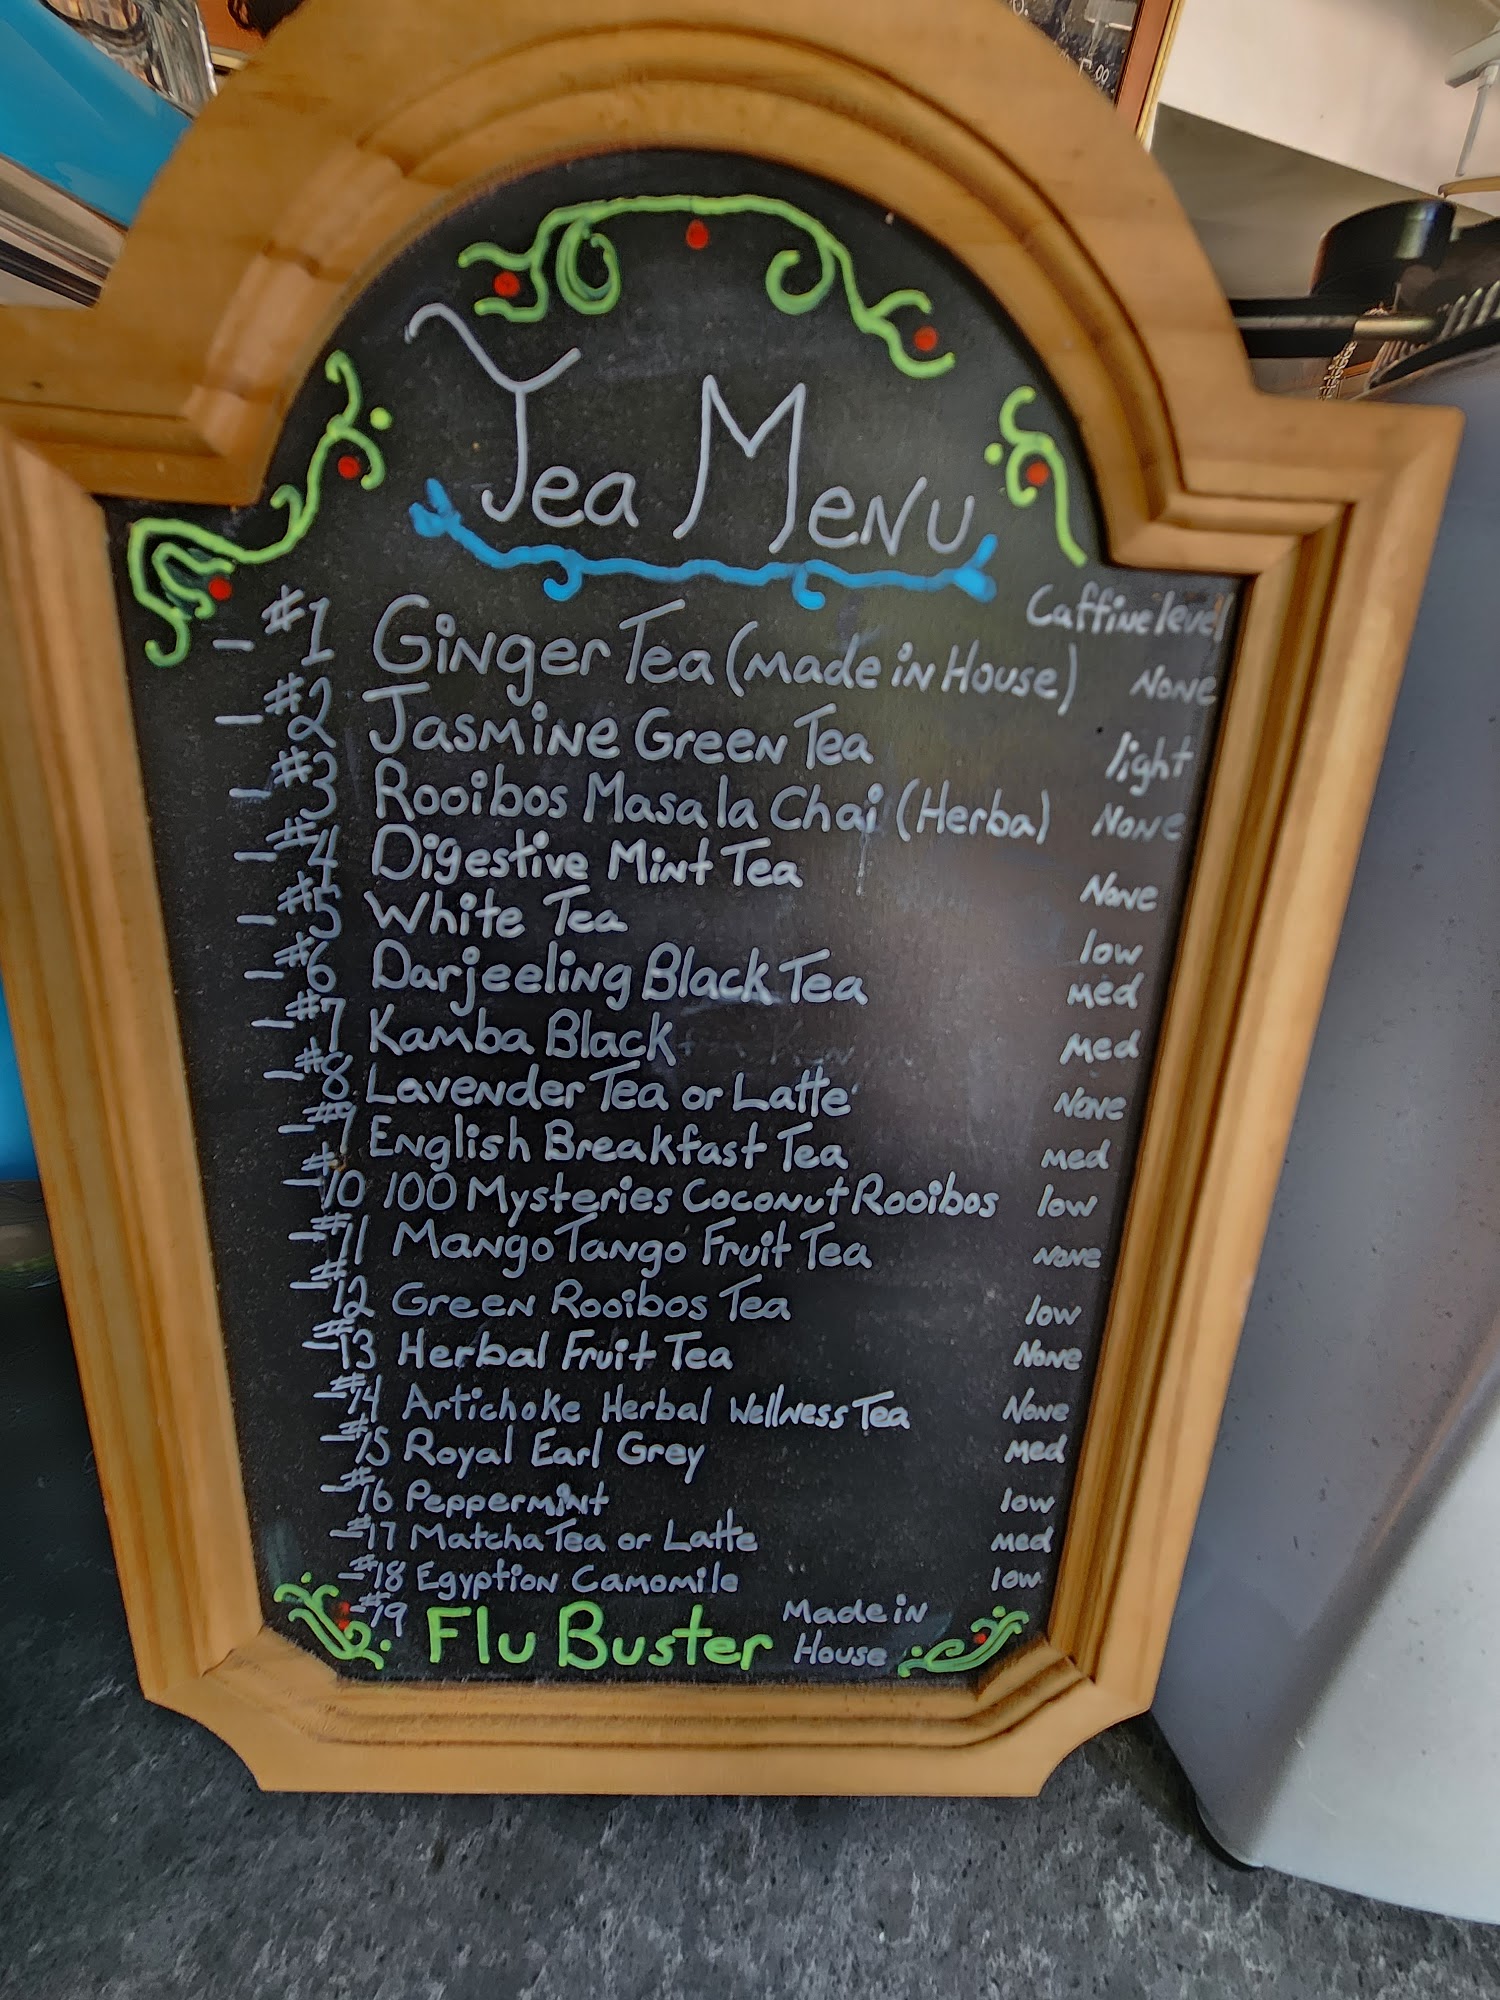 Tea Menu
Caffine level
- #1 Ginger Tea (made in House) None
- #2 Jasmine Green Tea light
- #3 Rooibos Masala Chai (Herbal) None
- #4 Digestive Mint Tea None
- #5 White Tea low
- #6 Darjeeling Black Tea med
- #7 Kamba Black Med
- #8 Lavender Tea or Latte None
- #9 English Breakfast Tea med
- #10 100 Mysteries Coconut Rooibos low
- #11 Mango Tango Fruit Tea None
- #12 Green Rooibos Tea low
- #13 Herbal Fruit Tea None
- #14 Artichoke Herbal Wellness Tea None
- #15 Royal Earl Grey Med
- #16 Peppermint low
- #17 Matcha Tea or Latte med
- #18 Egyption Camomile low
- #19 Flu Buster Made in
House